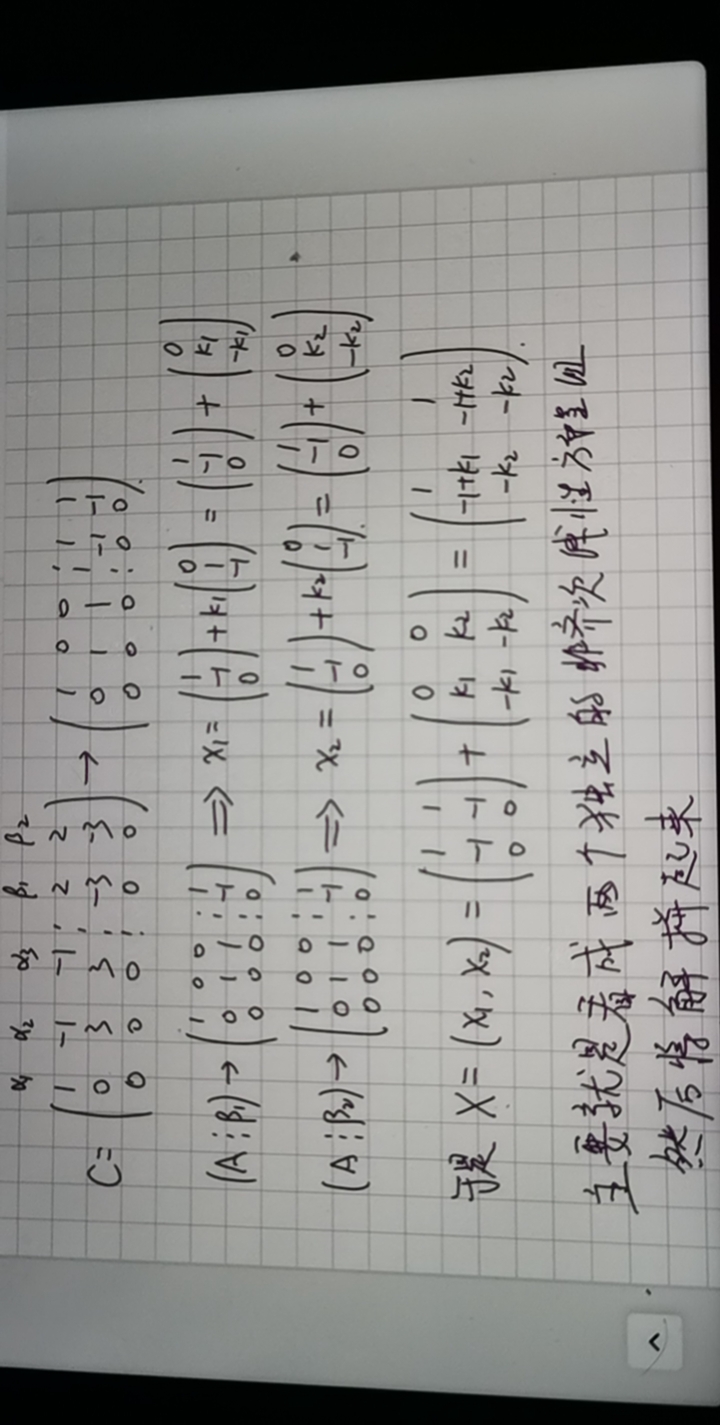 α₁ α₂ α₃ β₁ β₂
C= (1 -1 -1 ⋮ 2 2; 0 3 3 ⋮ -3 -3; 0 0 0 ⋮ 0 0) → (1 0 0 ⋮ 1 1; 0 1 1 ⋮ -1 -1; 0 0 0 ⋮ 0 0).
(A⋮β₁) → (1 0 0 ⋮ 1; 0 1 1 ⋮ -1; 0 0 0 ⋮ 0) ⇒ x₁ = (1; -1; 0) + k₁(0; 1; -1) = (1; -1; 0) + (0; k₁; -k₁)
(A⋮β₂) → (1 0 0 ⋮ 1; 0 1 1 ⋮ -1; 0 0 0 ⋮ 0) ⇒ x₂ = (1; -1; 0) + k₂(0; 1; -1). = (1; -1; 0) + (0; k₂; -k₂)
于是 X = (x₁, x₂) = (1 1; -1 -1; 0 0) + (0 0; k₁ k₂; -k₁ -k₂) = (1 1; -1+k₁ -1+k₂; -k₂ -k₂).
主要就是看成两个独立的非齐次线性方程组
然后将解拼起来